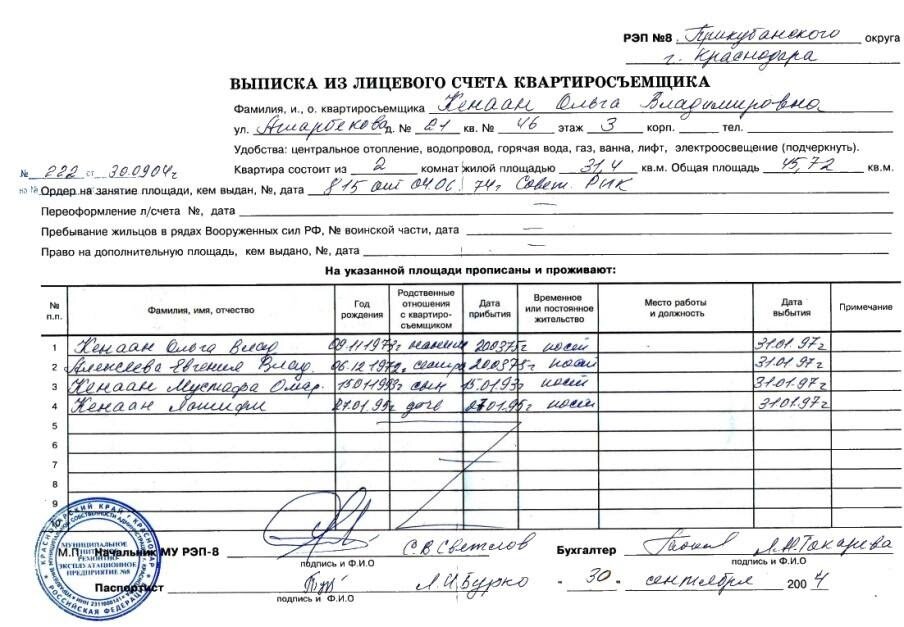 РЭП №8 Прикубанского округа
г. Краснодара
ВЫПИСКА ИЗ ЛИЦЕВОГО СЧЕТА КВАРТИРОСЪЕМЩИКА
Фамилия, и., о. квартиросъемщика Кенаан Ольга Владимировна
ул. Атарбекова д. № 21 кв. № 46 этаж 3 корп. тел.
Удобства: центральное отопление, водопровод, горячая вода, газ, ванна, лифт, электроосвещение (подчеркнуть).
№ 222 от 30.09.04г
Квартира состоит из 2 комнат жилой площадью 31,4 кв.м. Общая площадь 45,72 кв.м.
Ордер на занятие площади, кем выдан, №, дата 815 от 04.06.74г Совет. РИК
Переоформление л/счета №, дата —
Пребывание жильцов в рядах Вооруженных сил РФ, № воинской части, дата —
Право на дополнительную площадь, кем выдано, №, дата —
На указанной площади прописаны и проживают:
№ п.п. Фамилия, имя, отчество Год рождения Родственные отношения с квартиро-съемщиком Дата прибытия Временное или постоянное жительство Место работы и должность Дата выбытия Примечание
1 Кенаан Ольга Влад 200375г пост 31.01.97г
2 Алексеева Евгения Влад. сестра 200375г пост 31.01.97г
3 Кенаан Мустафа Омар. сын 15.01.93г пост 31.01.97г
4 Кенаан 27.01.95г дочь 27.01.95г пост 31.01.97г
5
6
7
8
9
10
М.П. Начальник МУ РЭП-8 С.В Светлов Бухгалтер Л.Н.Токарева
подпись и Ф.И.О подпись и Ф.И.О
Паспортист Л.И.Бурко " 30 " сентября 2004
подпись и Ф.И.О
КРАСНОДАРСКИЙ КРАЙ г. КРАСНОДАР
РОССИЙСКАЯ ФЕДЕРАЦИЯ
МУНИЦИПАЛЬНОЕ
РЕМОНТНО-
ЭКСПЛУАТАЦИОННОЕ
ПРЕДПРИЯТИЕ №8